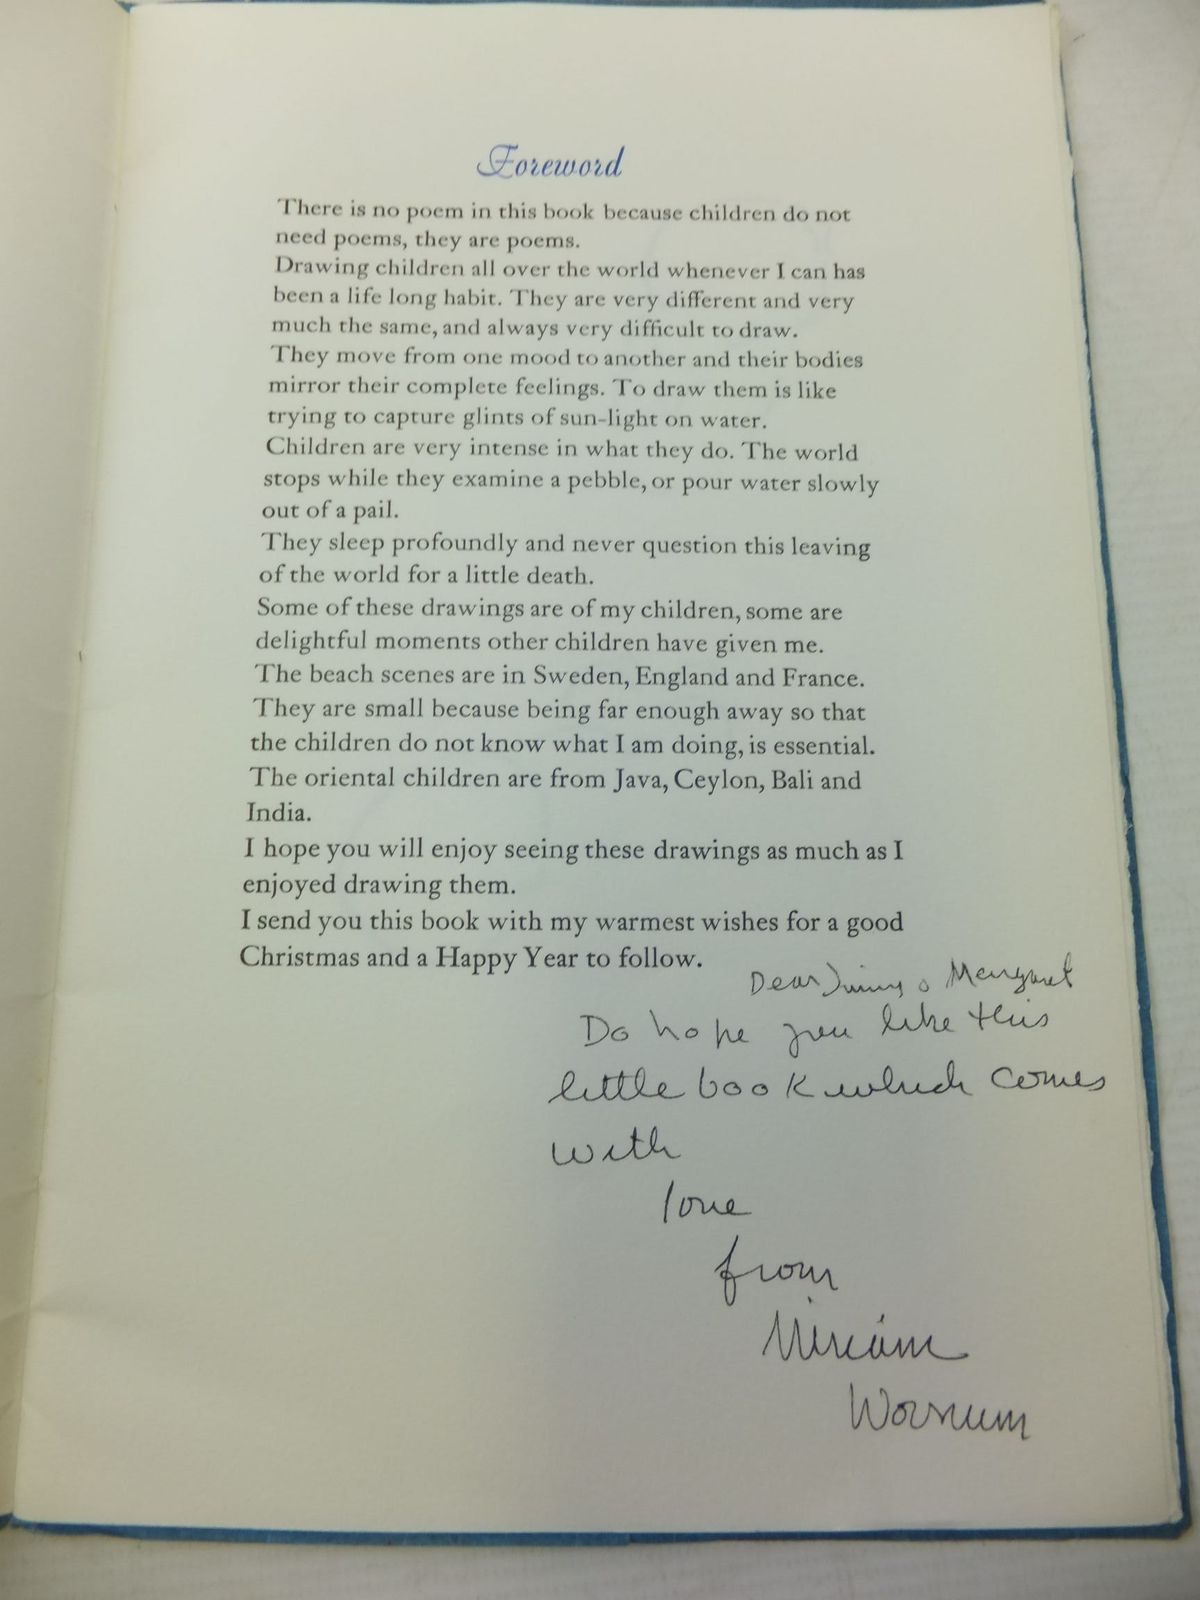 Foreword
There is no poem in this book because children do not
need poems, they are poems.
Drawing children all over the world whenever I can has
been a life long habit. They are very different and very
much the same, and always very difficult to draw.
They move from one mood to another and their bodies
mirror their complete feelings. To draw them is like
trying to capture glints of sun-light on water.
Children are very intense in what they do. The world
stops while they examine a pebble, or pour water slowly
out of a pail.
They sleep profoundly and never question this leaving
of the world for a little death.
Some of these drawings are of my children, some are
delightful moments other children have given me.
The beach scenes are in Sweden, England and France.
They are small because being far enough away so that
the children do not know what I am doing, is essential.
The oriental children are from Java, Ceylon, Bali and
India.
I hope you will enjoy seeing these drawings as much as I
enjoyed drawing them.
I send you this book with my warmest wishes for a good
Christmas and a Happy Year to follow.
Dear Margaret
Do hope you like this
little book which comes
with
love
from
Miriam
Wornum